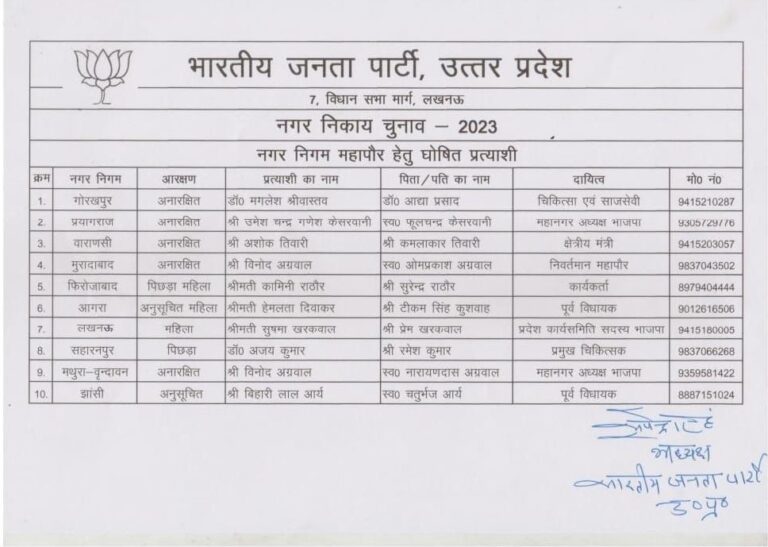 भारतीय जनता पार्टी, उत्तर प्रदेश
7, विधान सभा मार्ग, लखनऊ
नगर निकाय चुनाव – 2023
नगर निगम महापौर हेतु घोषित प्रत्याशी
क्रम नगर निगम आरक्षण प्रत्याशी का नाम पिता/पति का नाम दायित्व मो0 नं0
1. गोरखपुर अनारक्षित डॉ0 मगलेश श्रीवास्तव डॉ0 आद्या प्रसाद चिकित्सा एवा साजसेवी 9415210287
2. प्रयागराज अनारक्षित श्री उमेश चन्द्र गणेश केसरवानी स्व0 फूलचन्द्र केसरवानी महानगर अध्यक्ष भाजपा 9305729776
3. वाराणसी अनारक्षित श्री अशोक तिवारी श्री कमलाकार तिवारी क्षेत्रीय मंत्री 9415203057
4. मुरादाबाद अनारक्षित श्री विनोद अग्रवाल स्व0 ओमप्रकाश अग्रवाल निवर्तमान महापौर 9837043502
5. फिरोजाबाद पिछड़ा महिला श्रीमती कामिनी राठौर श्री सुरेन्द्र राठौर कार्यकर्ता 8979404444
6. आगरा अनुसूचित महिला श्रीमती हेमलता दिवाकर श्री टीकम सिंह कुशवाह पूर्व विधायक 9012616506
7. लखनऊ महिला श्रीमती सुषमा खरकवाल श्री प्रेम खरकवाल प्रदेश कार्यसमिति सदस्य भाजपा 9415180005
8. सहारनपुर पिछड़ा डॉ0 अजय कुमार श्री रमेश कुमार प्रमुख चिकित्सक 9837066268
9. मथुरा-वृन्दावन अनारक्षित श्री विनोद अग्रवाल स्व0 नारायणदास अग्रवाल महानगर अध्यक्ष भाजपा 9359581422
10. झांसी अनुसूचित श्री बिहारी लाल आर्य स्व0 चतुर्भज आर्य पूर्व विधायक 8887151024
अध्यक्ष
भारतीय जनता पार्टी
उ०प्र०